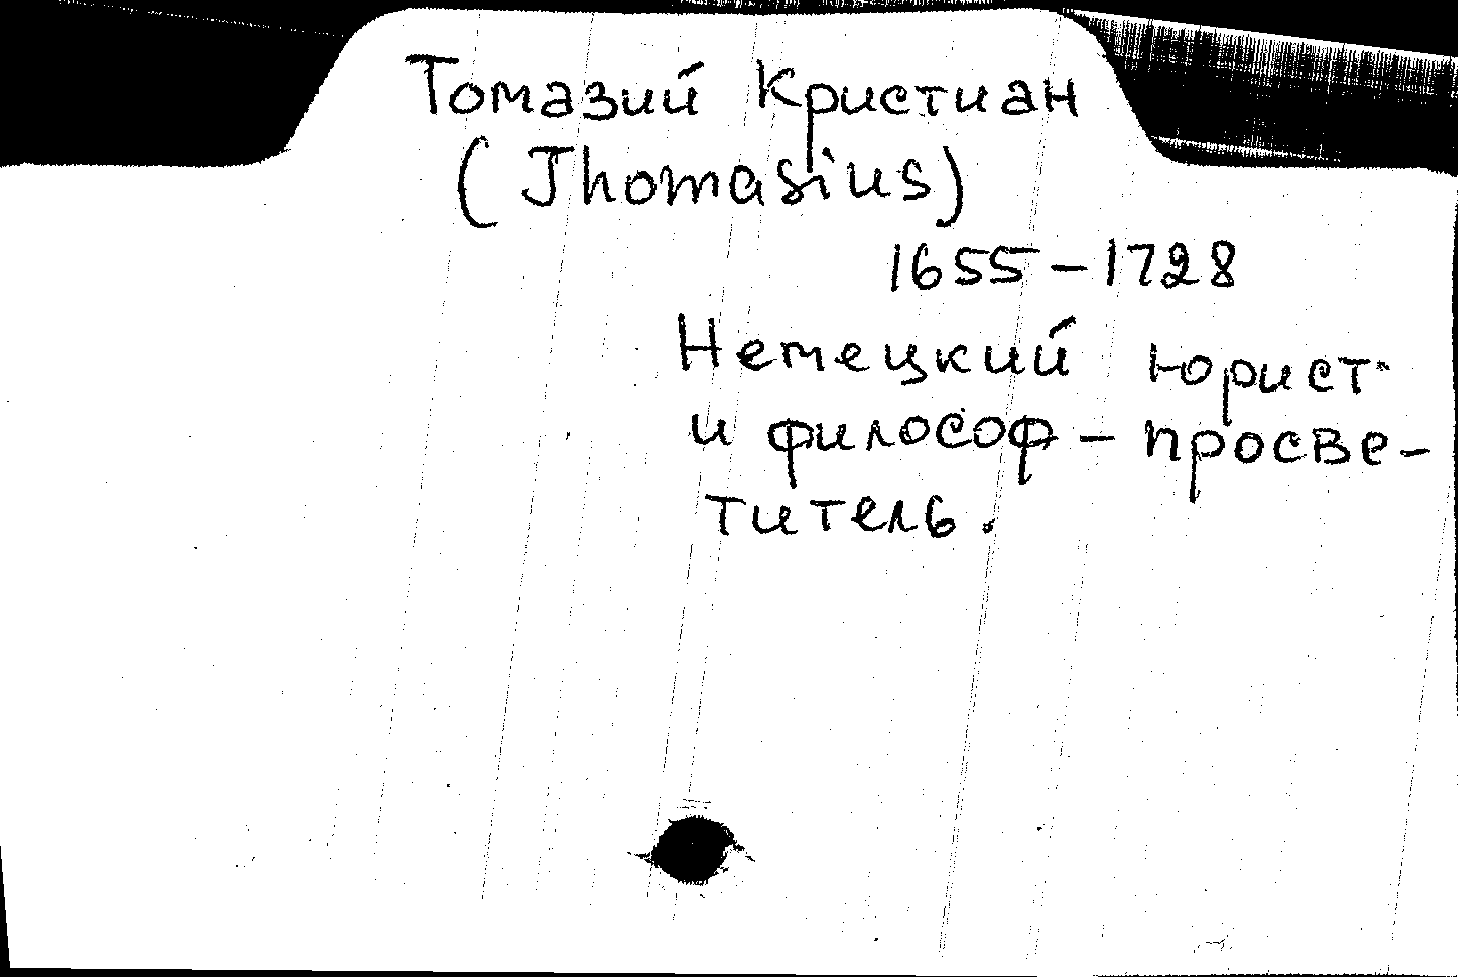 Томазий Кристиан
(Thomasius)
1655-1728
Немецкий юрист
и философ - просве-
титель.